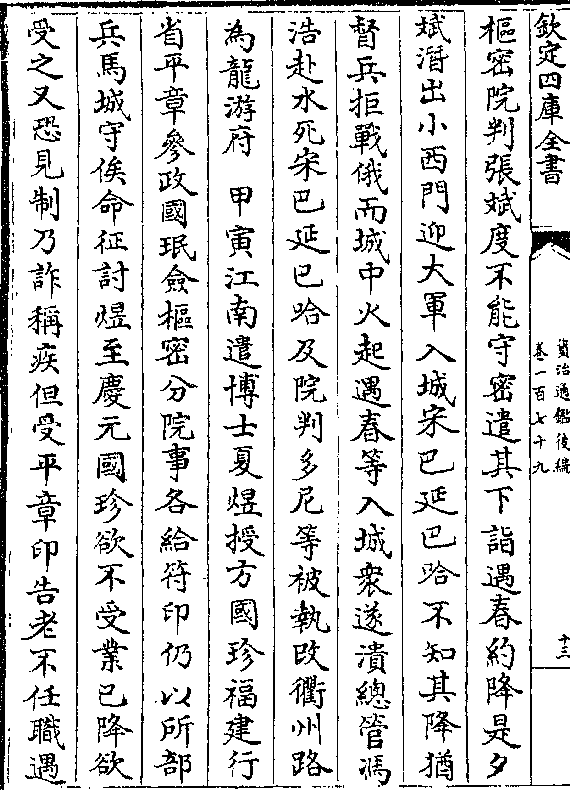 欽定四庫全書
資治通鑑後編
卷一百七十九
十三
樞密院判張斌度不能守密遣其下詣遇春約降是夕
斌潛出小西門迎大軍入城宋巴延巴哈不知其降猶
督兵拒戰俄而城中火起遇春等入城衆遂潰總管馮
浩赴水死宋巴延巴哈及院判多尼等被執改衢州路
為龍游府　甲寅江南遣博士夏煜授方國珍福建行
省平章參政國珉僉樞密分院事各給符印仍以所部
兵馬城守俟命征討煜至慶元國珍欲不受業已降欲
受之又恐見制乃詐稱疾但受平章印告老不任職遇